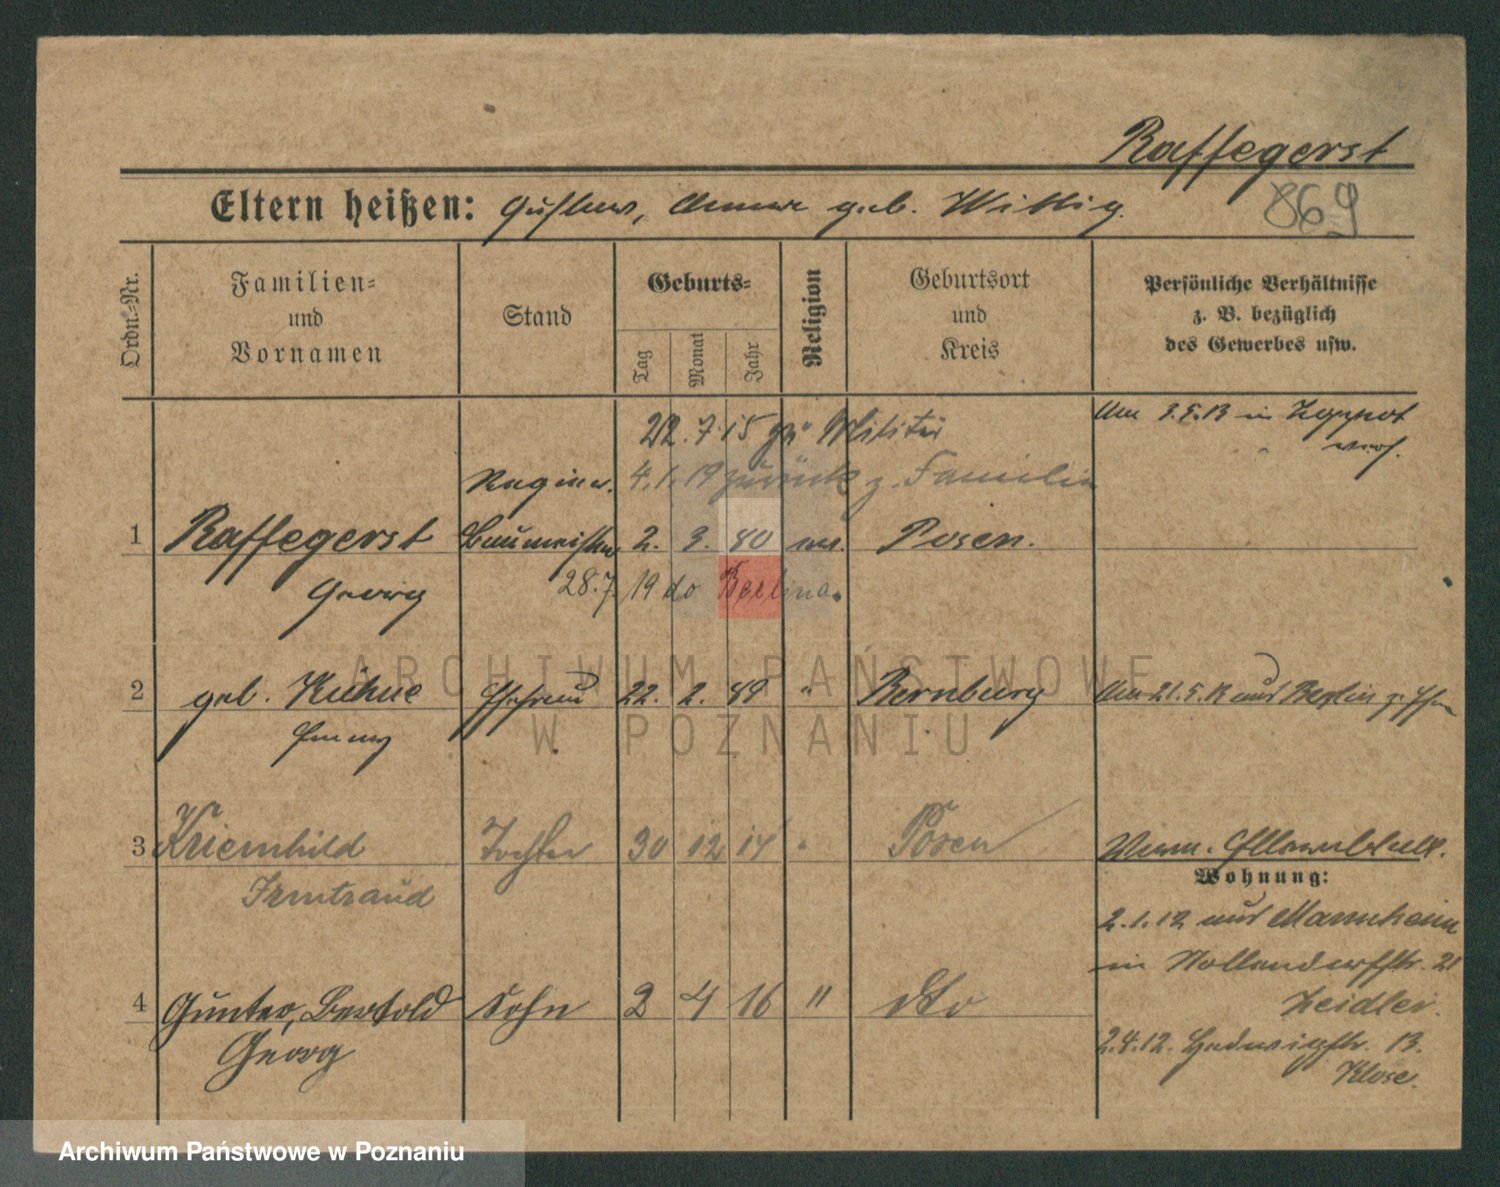 Raffegerst
Eltern heißen: Gustav, Anna geb. Wittig.
869
Ordn.-Nr.
Familien-
und
Vornamen
Stand
Geburts-
Tag
Monat
Jahr
Religion
Geburtsort
und
Kreis
Persönliche Verhältnisse
z. B. bezüglich
des Gewerbes usw.
22.7.15 zu Militär
4.1.19 zurück z. Familie
Am 3.5.13 in Zoppot
verh.
1 Raffegerst
Georg
Regier.
Baumeister
2. 3. 80 ev. Posen.
28.7.19 do Berlina.
2 geb. Kühne
Emmy
Ehefrau 22. 2. 89 " Bernburg
Am 21.5.13 aus Berlin z.
3 Kriemhild
Irmtraud
Tochter 30 12 14 " Posen
Wohnung:
2.1.12 aus Mannheim
in Nollendorfstr. 21
Zeidler.
2.4.12. Hedwigstr. 13.
Klose.
4 Gunter, Bertold
Georg
Sohn 2 4 16 " dto
ARCHIWUM PAŃSTWOWE
W POZNANIU
Archiwum Państwowe w Poznaniu